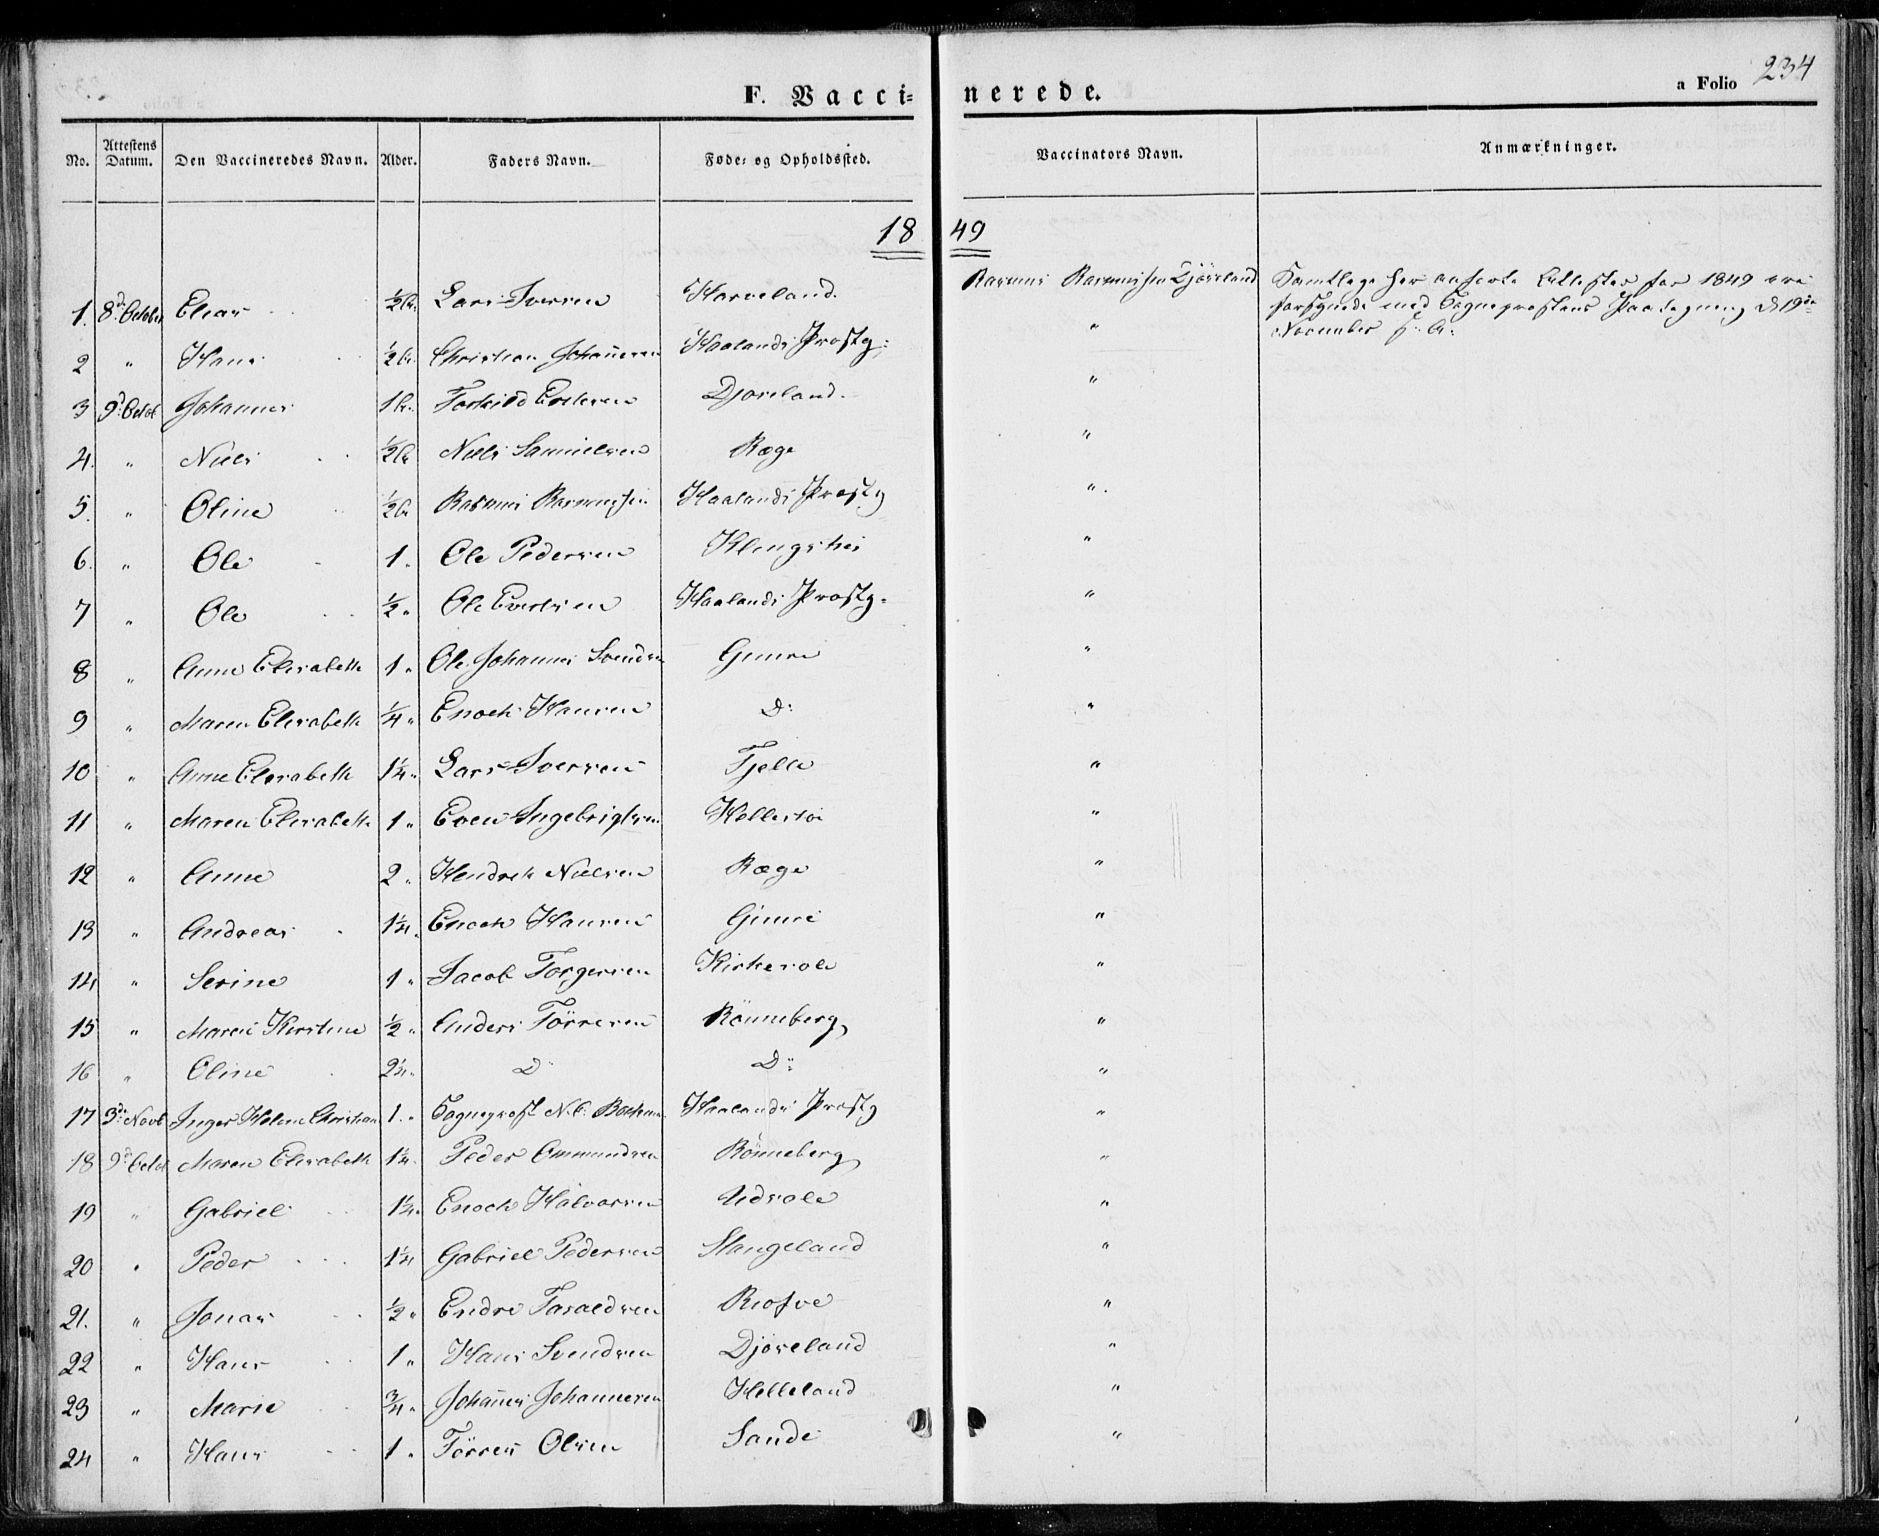 234
a Folio
F. Vacci=nerede.
No. Attestens Datum. Den Vaccineredes Navn. Alder. Faders Navn. Føde= og Opholdssted. Vaccinators Navn. Anmærkninger.
1849
1. 8de October Elias ½ Lars Iversen Harveland. Rasmus Rasmussen Djöseland Samtlige her anførte Attester for 1849 ere
forsynede med Sognepræstens Paategning d. 19de
November s. A.
2 " Hans ½ Christian Johannesen Haalands Prostg: "
3 9d Octob Johannes 1 Torkild Djöseland. "
4. " Niels ½ Niels Samuelsen Ræge "
5. " Oline ½ Rasmus Rasmussen Haalands Prostg ".
6. " Ole 1. Ole Pedersen "
7 " Ole ½ " Ole Evertsen Haalands Prostg. "
8 " Anne Elisabeth 1 " Ole Johannes Svendsen Gimre "
9 " Maren Elisabeth ¼ " Enoch Hansen D: "
10 " Anne Elisabeth 1¼ " Lars Iversen Tjelle "
11 " Maren Elisabeth 1 " Even Ingebrigtsen "
12 " Anne 2 " Hendrik Nielsen Ræge "
13 " Andreas 1¼ " Enoch Hansen Gimre "
14 " Serine 1 " Jacob Torgersen Kirkesole "
15 " Maren Kirstine ½ " Anders Törresen Rönneberg "
16 " Oline 2¼ " D D: "
17 3de Novb Inger Helene Christiane 1. " Sogneprest N. Haalands Prostg "
18 9d Octob Maren Elisabeth 1¼ Peder Ommundsen Rönneberg "
19 " Gabriel 1¼ " Enoch Halvorsen Udsole "
20 " Peder 1¼ Gabriel Pedersen Stangeland "
21. " Jonas ½ " Endre Taraldsen "
22 " Hans 1 " Hans Svendsen Djöseland "
23 " Marie ¾ " Johannes Johannesen Helleland "
24 " Hans 1 " Törres Olsen Sande "